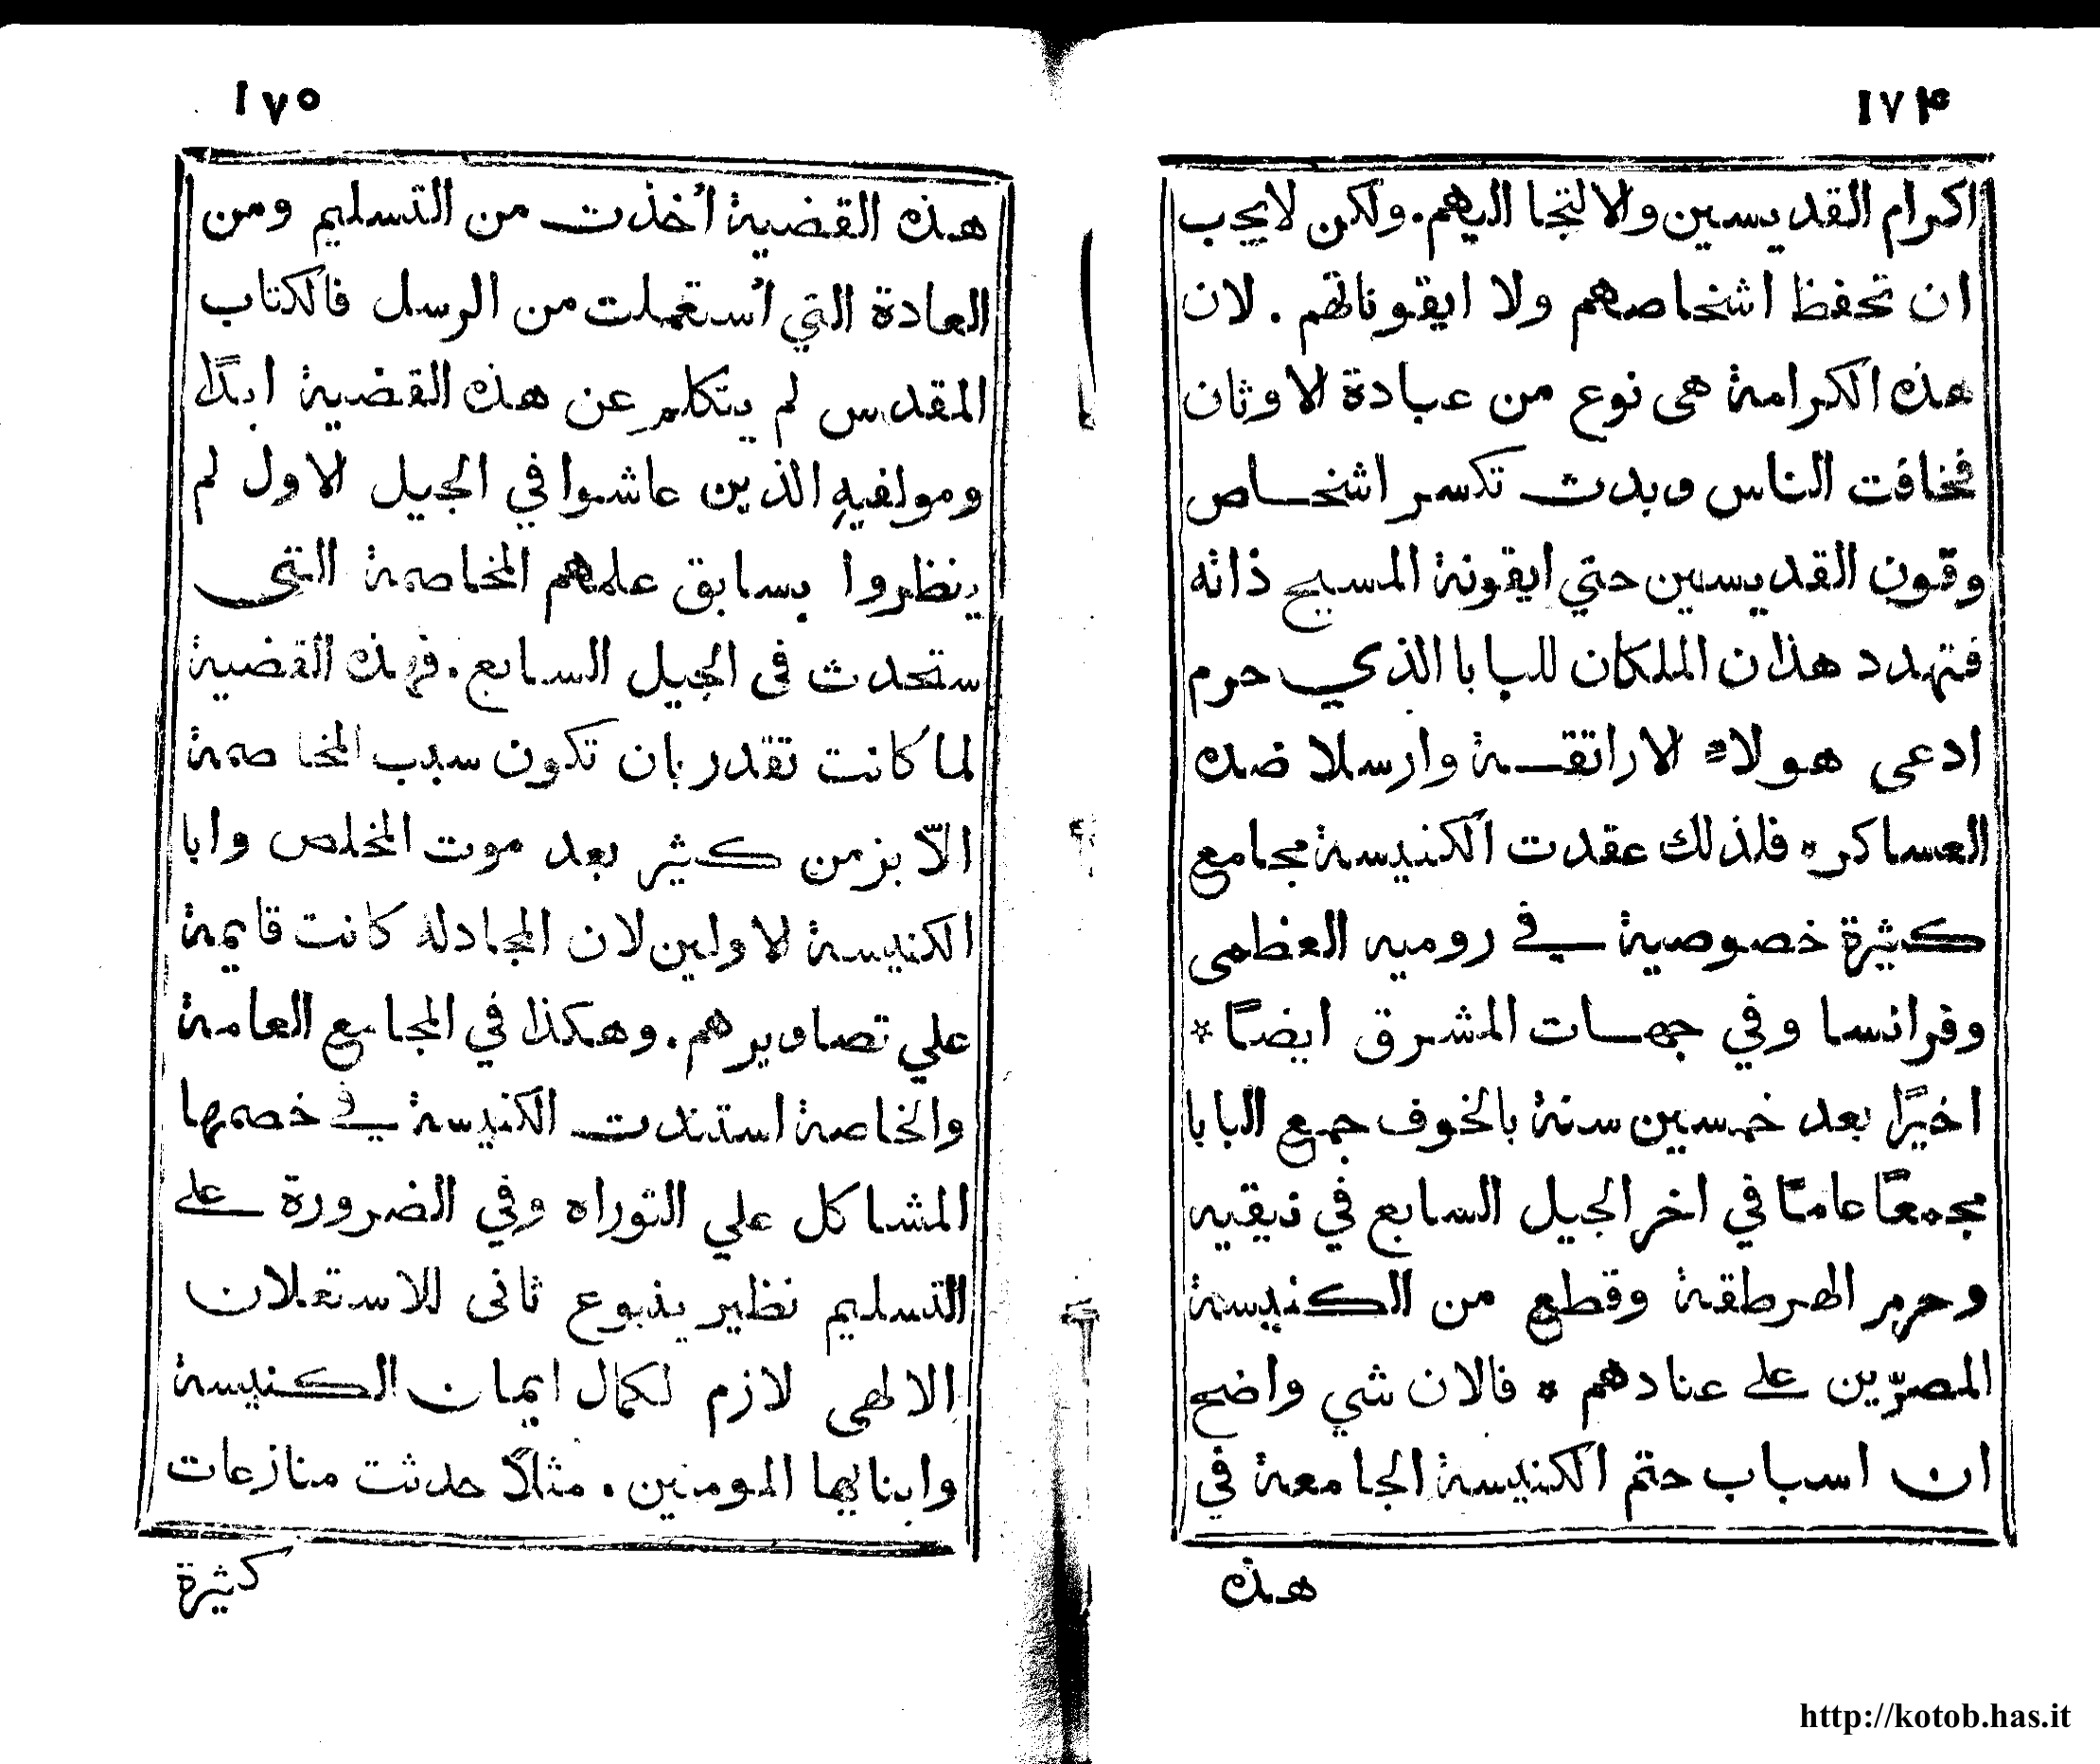 ١٧۴
اكرام القديسين والالتجا اليهم. ولكن لايجب
ان تحفظ اشخاصهم ولا ايقوناتهم. لان
هذه الكرامة هى نوع من عبادة الاوثان
فخافت الناس وبدت تكسر اشخاص
وقون القديسين حتي ايقونة المسيح ذاته
فتهدد هذان الملكان للبابا الذي حرم
ادعى هولاء الاراتقة وارسلا ضده
العساكر * فلذلك عقدت الكنيسة مجامع
كثيرة خصوصية في روميه العظمى
وفرانسا وفي جهات المشرق ايضًا *
اخيرًا بعد خمسين سنة بالخوف جمع البابا
مجمعًا عامًا في اخر الجيل السابع في نيقيه
وحرم الهرطقة وقطع من الكنيسة
المصرّين على عنادهم * فالان شي واضح
ان اسباب حتم الكنيسة الجامعة في
هذه
١٧٥
هذه القضية أخذت من التسليم ومن
العادة التي أستعملت من الرسل فالكتاب
المقدس لم يتكلم عن هذه القضية ابدًا
ومولفيه الذين عاشوا في الجيل الاول لم
ينظروا بسابق علمهم المخاصمة التى
ستحدث فى الجيل السابع. فهذه القضية
لما كانت تقدر بان تكون سبب المخاصمة
الّا بزمن كثير بعد موت المخلص وابا
الكنيسة الاولين لان المجادلة كانت قايمة
علي تصاويرهم. وهكذا في المجامع العامة
والخاصة استندت الكنيسة في خصمها
المشاكل علي التوراه وفي الضرورة على
التسليم نظير ينبوع ثانى للاستعلان
الالهى لازم لكمال ايمان الكنيسة
وابنايها المومنين. مثلًا حدثت منازعات
كثيرة
http://kotob.has.it